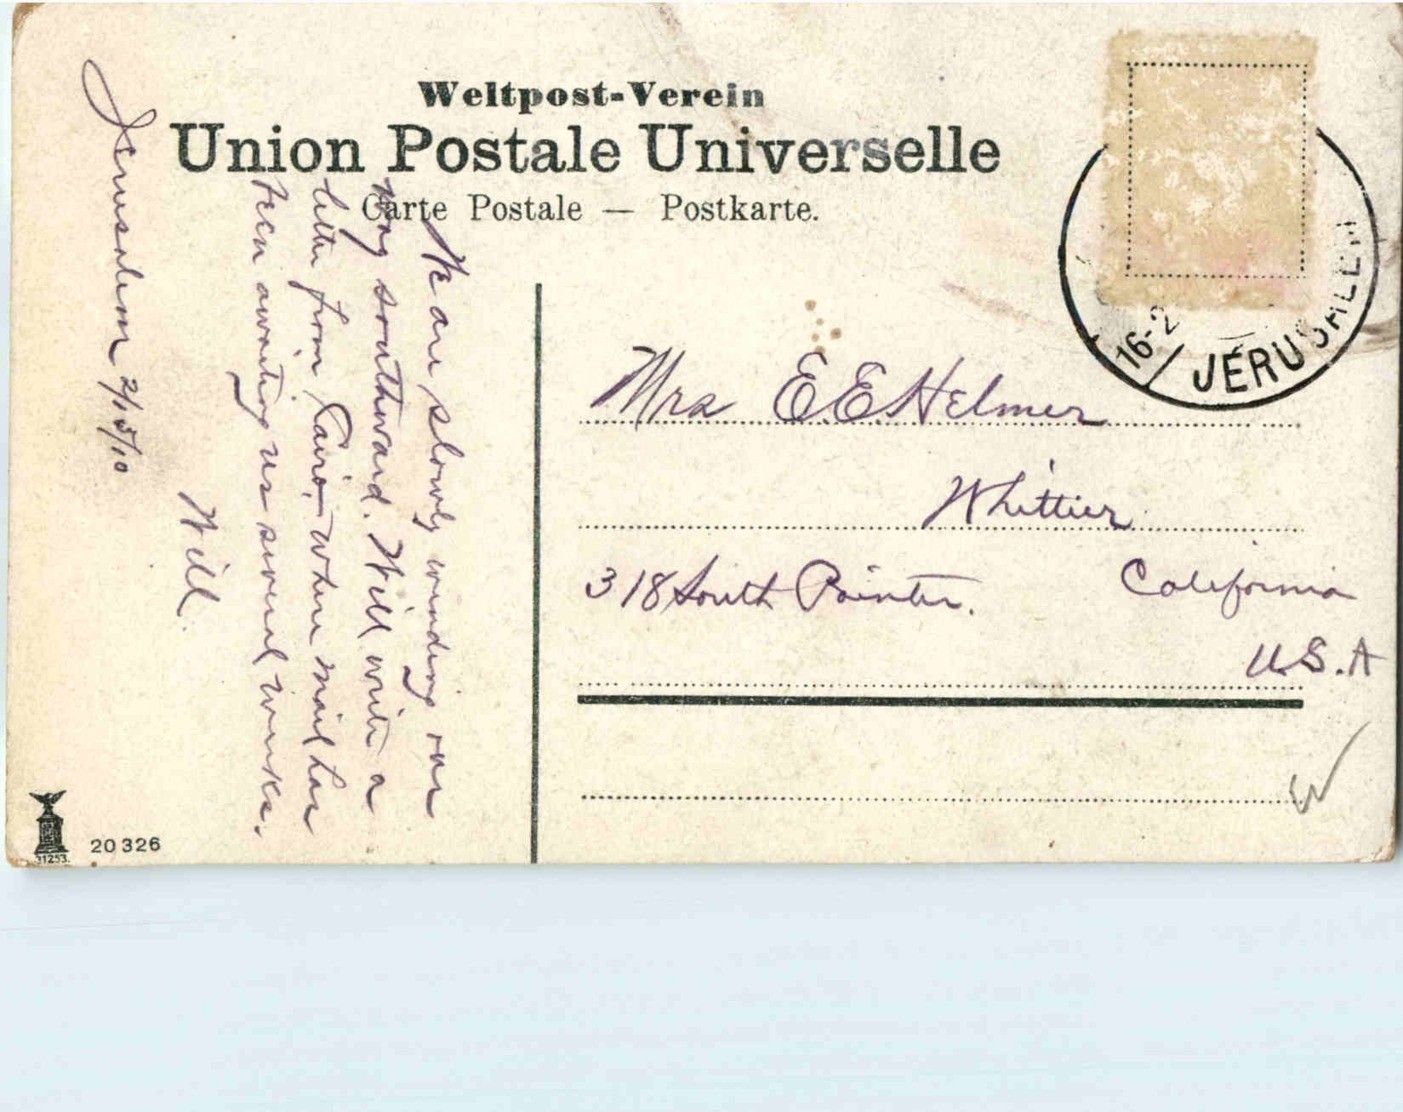 Weltpost-Verein
Union Postale Universelle
Carte Postale — Postkarte.
Jerusalem 2/15/10
We are slowly wending our
way southward. Will write a
letter from Cairo, where mail has
been awaiting us several weeks.
Will.
16-2
JERUSALEM
Mrs E. E. Helmer
Whittier
318 South Painter.
California
U.S.A
W
31253.
20326